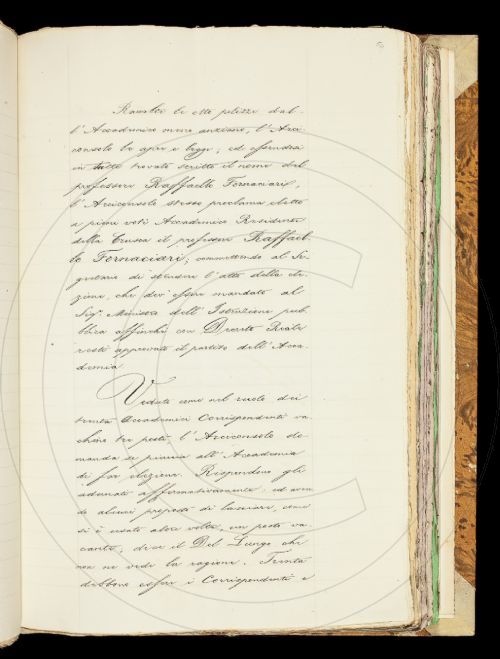 Raccolte le otto polizze dal-
l'Accademico meno anziano, l'Arci-
consolo le apre e legge; ed essendosi
in tutte trovato scritto il nome del
professore Raffaello Fornaciari,
l'Arciconsolo stesso proclama eletto
a pieni voti Accademico Residente
della Crusca il professor Raffael-
lo Fornaciari; commettendo al Se-
gretario di stendere l'atto della ele-
zione, che dev'esser mandato al
Sig.r Ministro dell'Istruzione pub-
blica affinchè con Decreto Reale
resti approvato il partito dell'Acca-
demia.
Veduto come nel ruolo dei
trenta Accademici Corrispondenti va-
chino tre posti, l'Arciconsolo do-
manda se piaccia all'Accademia
di far elezione. Rispondono gli
adunati affermativamente: ed aven-
do alcuni proposto di lasciare, come
si è usato altre volte, un posto va-
cante, dice il Del Lungo che
non ne vede la ragione. Trenta
debbono esser i Corrispondenti e